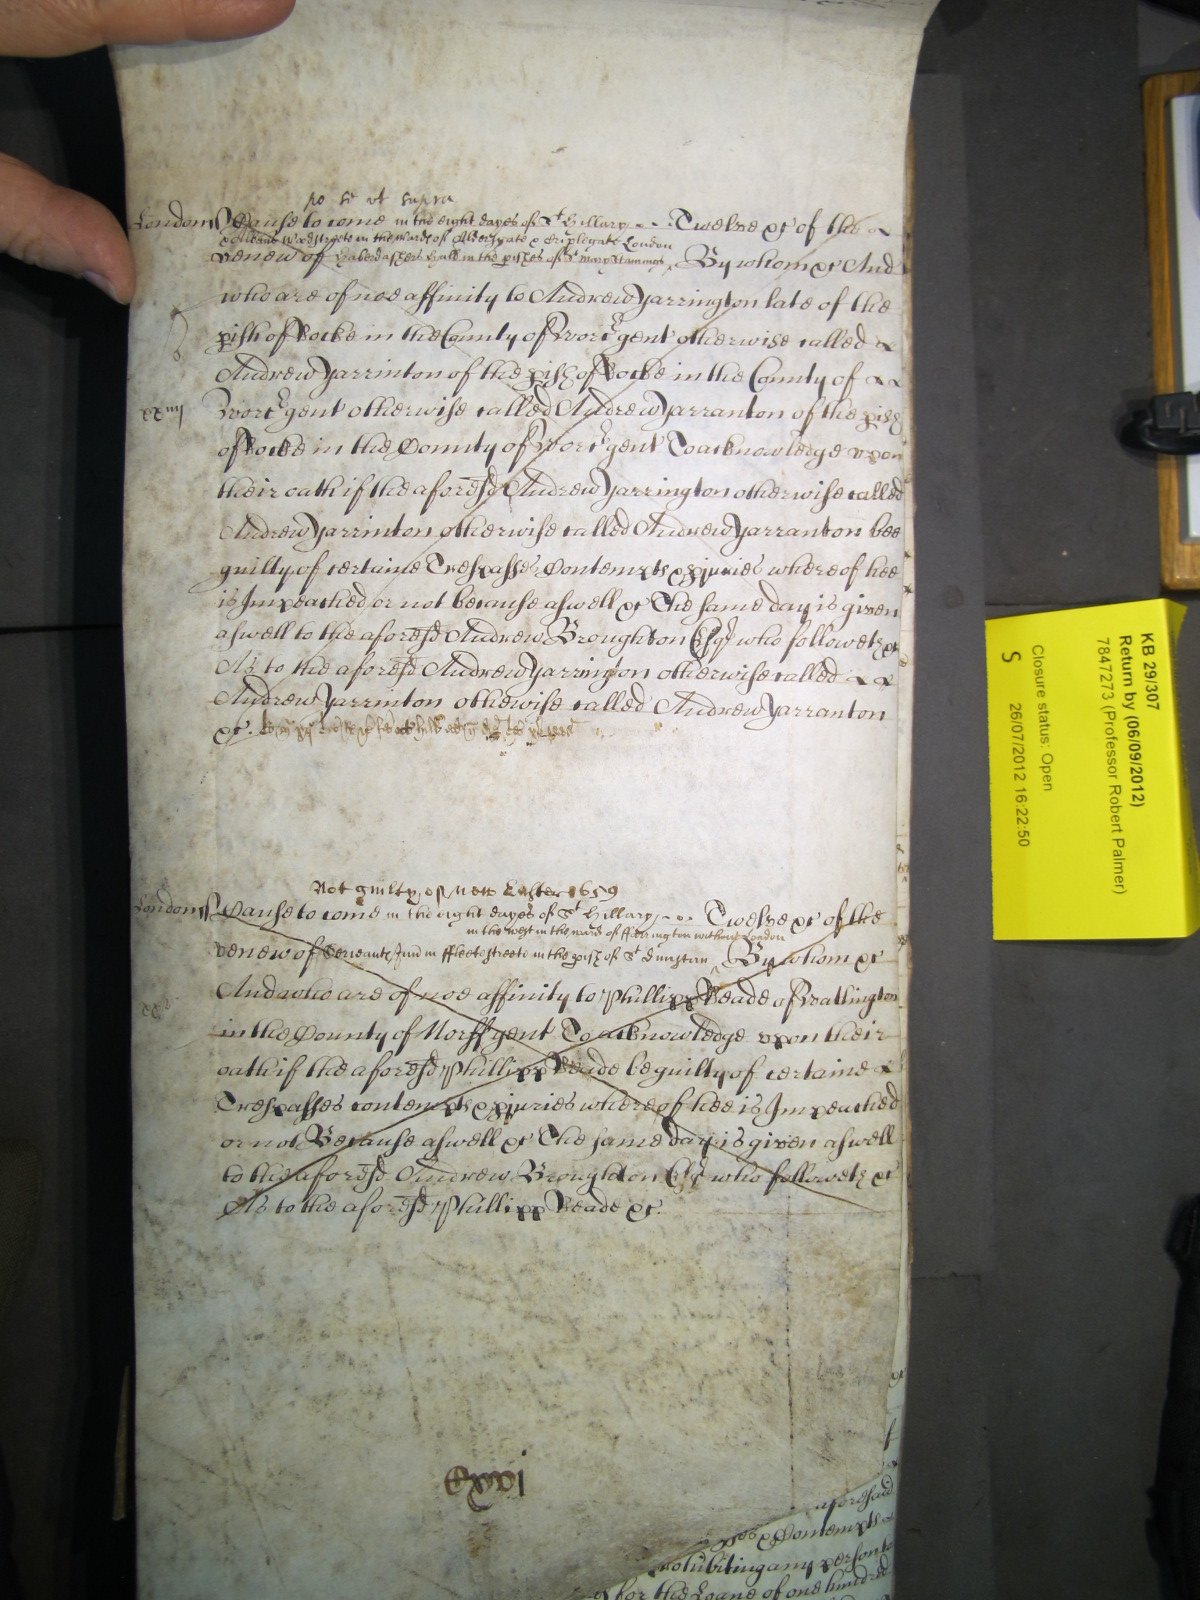 po se ut supra
London ss Cause to come in the eight dayes of St Hillary - - Twelve &c of the
& Albans Woodstreete in the wards of Aldersgate & Criplegate London
venew of Haberdashers Hall in the pishes of St Mary Stainings By whom &c And
who are of noe affinity to Andrew Yarrington late of the
pish of Rocke in the County of Worcr gent otherwise called
Andrew Yarrinton of the pish of Rocke in the County of
xxiiij
Worcr gent otherwise called Andrew Yarranton of the pish
of Rocke in the County of Worcr gent To acknowledge upon
their oath if the aforesd Andrew Yarrington otherwise called
Andrew Yarrinton otherwise called Andrew Yarranton bee
guilty of certaine Trespasses Contempts & Injuries whereof hee
is Impeached or not because aswell &c The same day is given
aswell to the aforesd Andrew Broughton Esqr who followeth &c
As to the aforesd Andrew Yarrington otherwise called
Andrew Yarrinton otherwise called Andrew Yarranton
&c.
Not guilty of New Easter 1659
London ss Cause to come in the eight dayes of St Hillary - - Twelve &c of the
in the west in the ward of Farrington without London
venew of Serieants Inn in Fleetestreete in the pish of St Dunstan By whom &c
And who are of noe affinity to Phillipp Beade of Watlington
in the County of Norff gent To acknowledge upon their
oath if the aforesd Phillipp Beade be guilty of certaine
Trespasses contempts & Injuries whereof hee is Impeached
or not Because aswell &c The same day is given aswell
to the aforesd Andrew Broughton Esqr who followeth &c
As to the aforesd Phillipp Beade &c.
aforesaid
Contempts
for the Loane of one hundred
KB 29/307
Return by (06/09/2012)
7847273 (Professor Robert Palmer)
Closure status: Open
S 26/07/2012 16:22:50